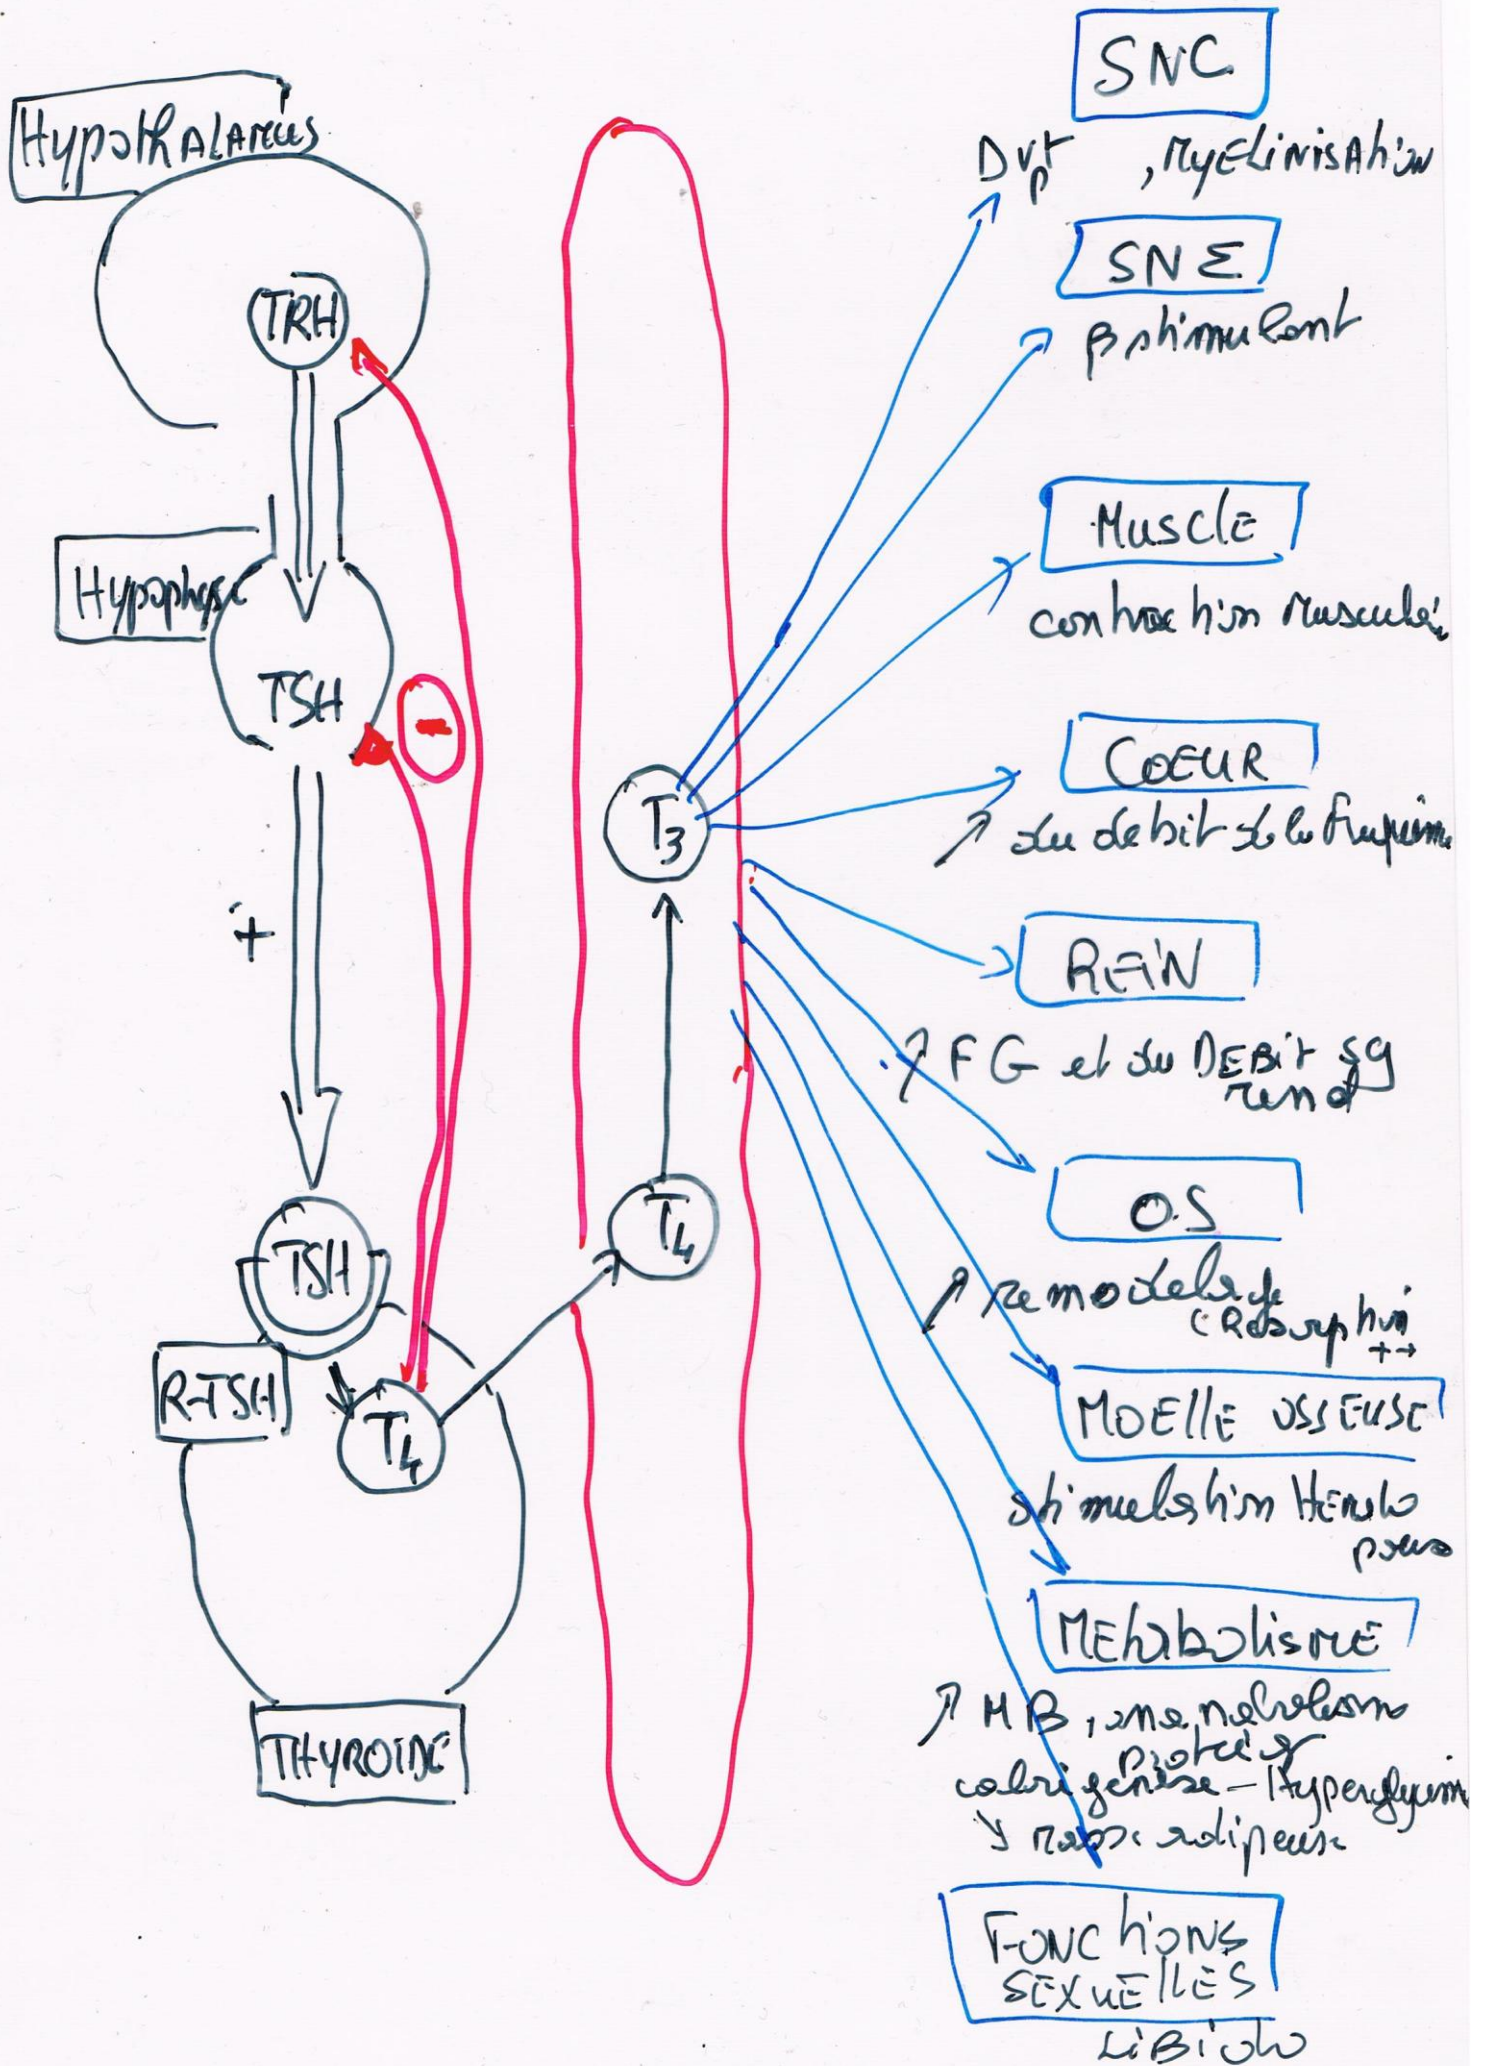 HypothALAMUS
TRH
Hypophyse
TSH
-
+
TSH
R-TSH
T4
THYROIDE
T3
T4
SNC
Dvpt , MyELiNisAtion
SNE
β stimulant
MusclE
contraction Musculai
COEUR
↗ du debit de la frequence
REiN
↗ FG et du DEBit sg
renal
OS
↗ remodelage
(Résorption
++
MOEllE OSSEUSE
stimulation Hémato
poies
MEtabolisME
↗ MB,
calorigénèse - Hyperglycem
↘ masse adipeuse
FONCtioNS
SEXuEllES
LiBiDo